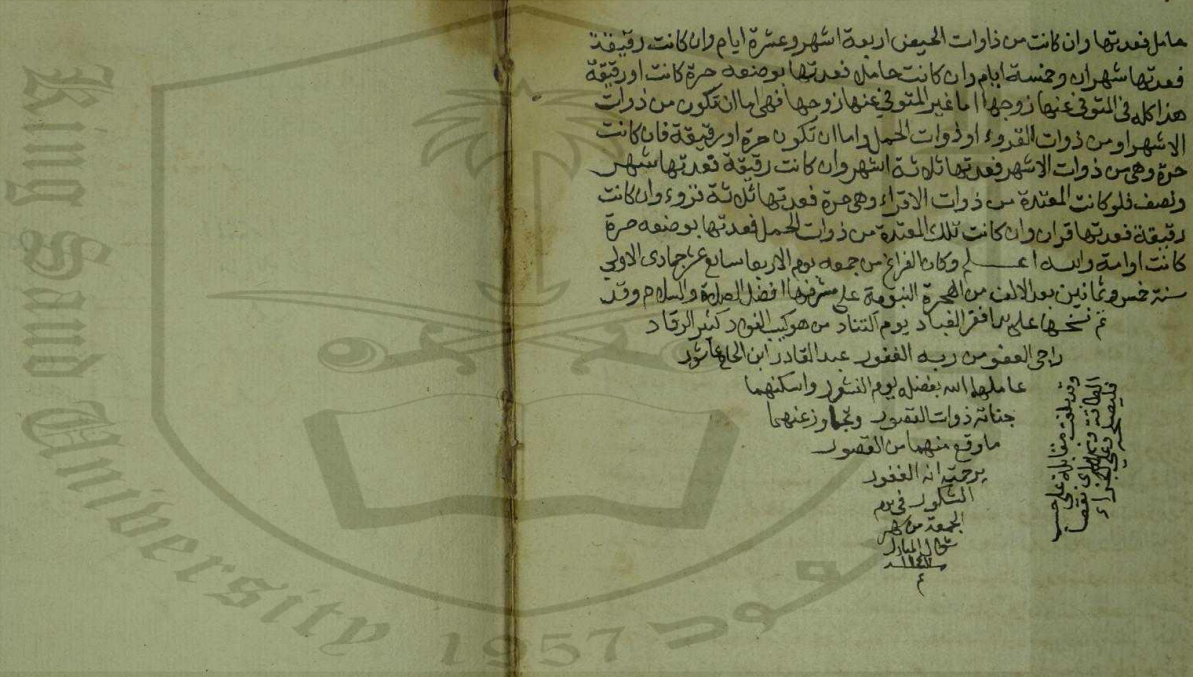 حامل فعدتها وان كانت من ذاوات الحيض اربعة اشهر وعشرة ايام وان كانت رقيقة
فعدتها شهران وخمسة ايام وان كانت حامل فعدتها بوضعه حرة كانت او رقيقة
هذا كله فى المتوفى عنها زوجها اما غير المتوفى عنها زوجها فهى اما ان تكون من ذوات
الاشهر او من ذوات القروء او ذوات الحمل واما ان تكون حرة او رقيقة فان كانت
حرة وهى من ذوات الاشهر فعدتها ثلاثة اشهر وان كانت رقيقة فعدتها شهر
ونصف فلو كانت المعتدة من ذوات الاقراء وهى حرة فعدتها ثلاثة قروء وان كانت
رقيقة فعدتها قران وان كانت تلك المعتدة من ذوات الحمل فعدتها بوضعه حرة
كانت او امة والله اعلم وكان الفراغ من جمعه يوم الاربعا سابع عشر جمادى الاولى
سنة خمس وثمانين بعد الالف من الهجرة النبوية على مشرفها افضل الصلاة والسلام وقد
تم نسخها على يد افقر العباد يوم التناد من هو كثير الرقاد
راجى العفو من ربه الغفور عبد القادر ابن الحاج عاشور
عاملهما الله بفضله يوم النشور واسكنهما
جناته ذوات القصور وتجاوز عنهما
ما وقع منهما من القصور
برحمته انه الغفور
الشكور فى يوم
الجمعة من شهر
شوال المبارك
م
وقد بلغت مقابلة على حسب
الطاقة
فليصلحه وعلى الله الجزاء
King Saud University
1957
سعود